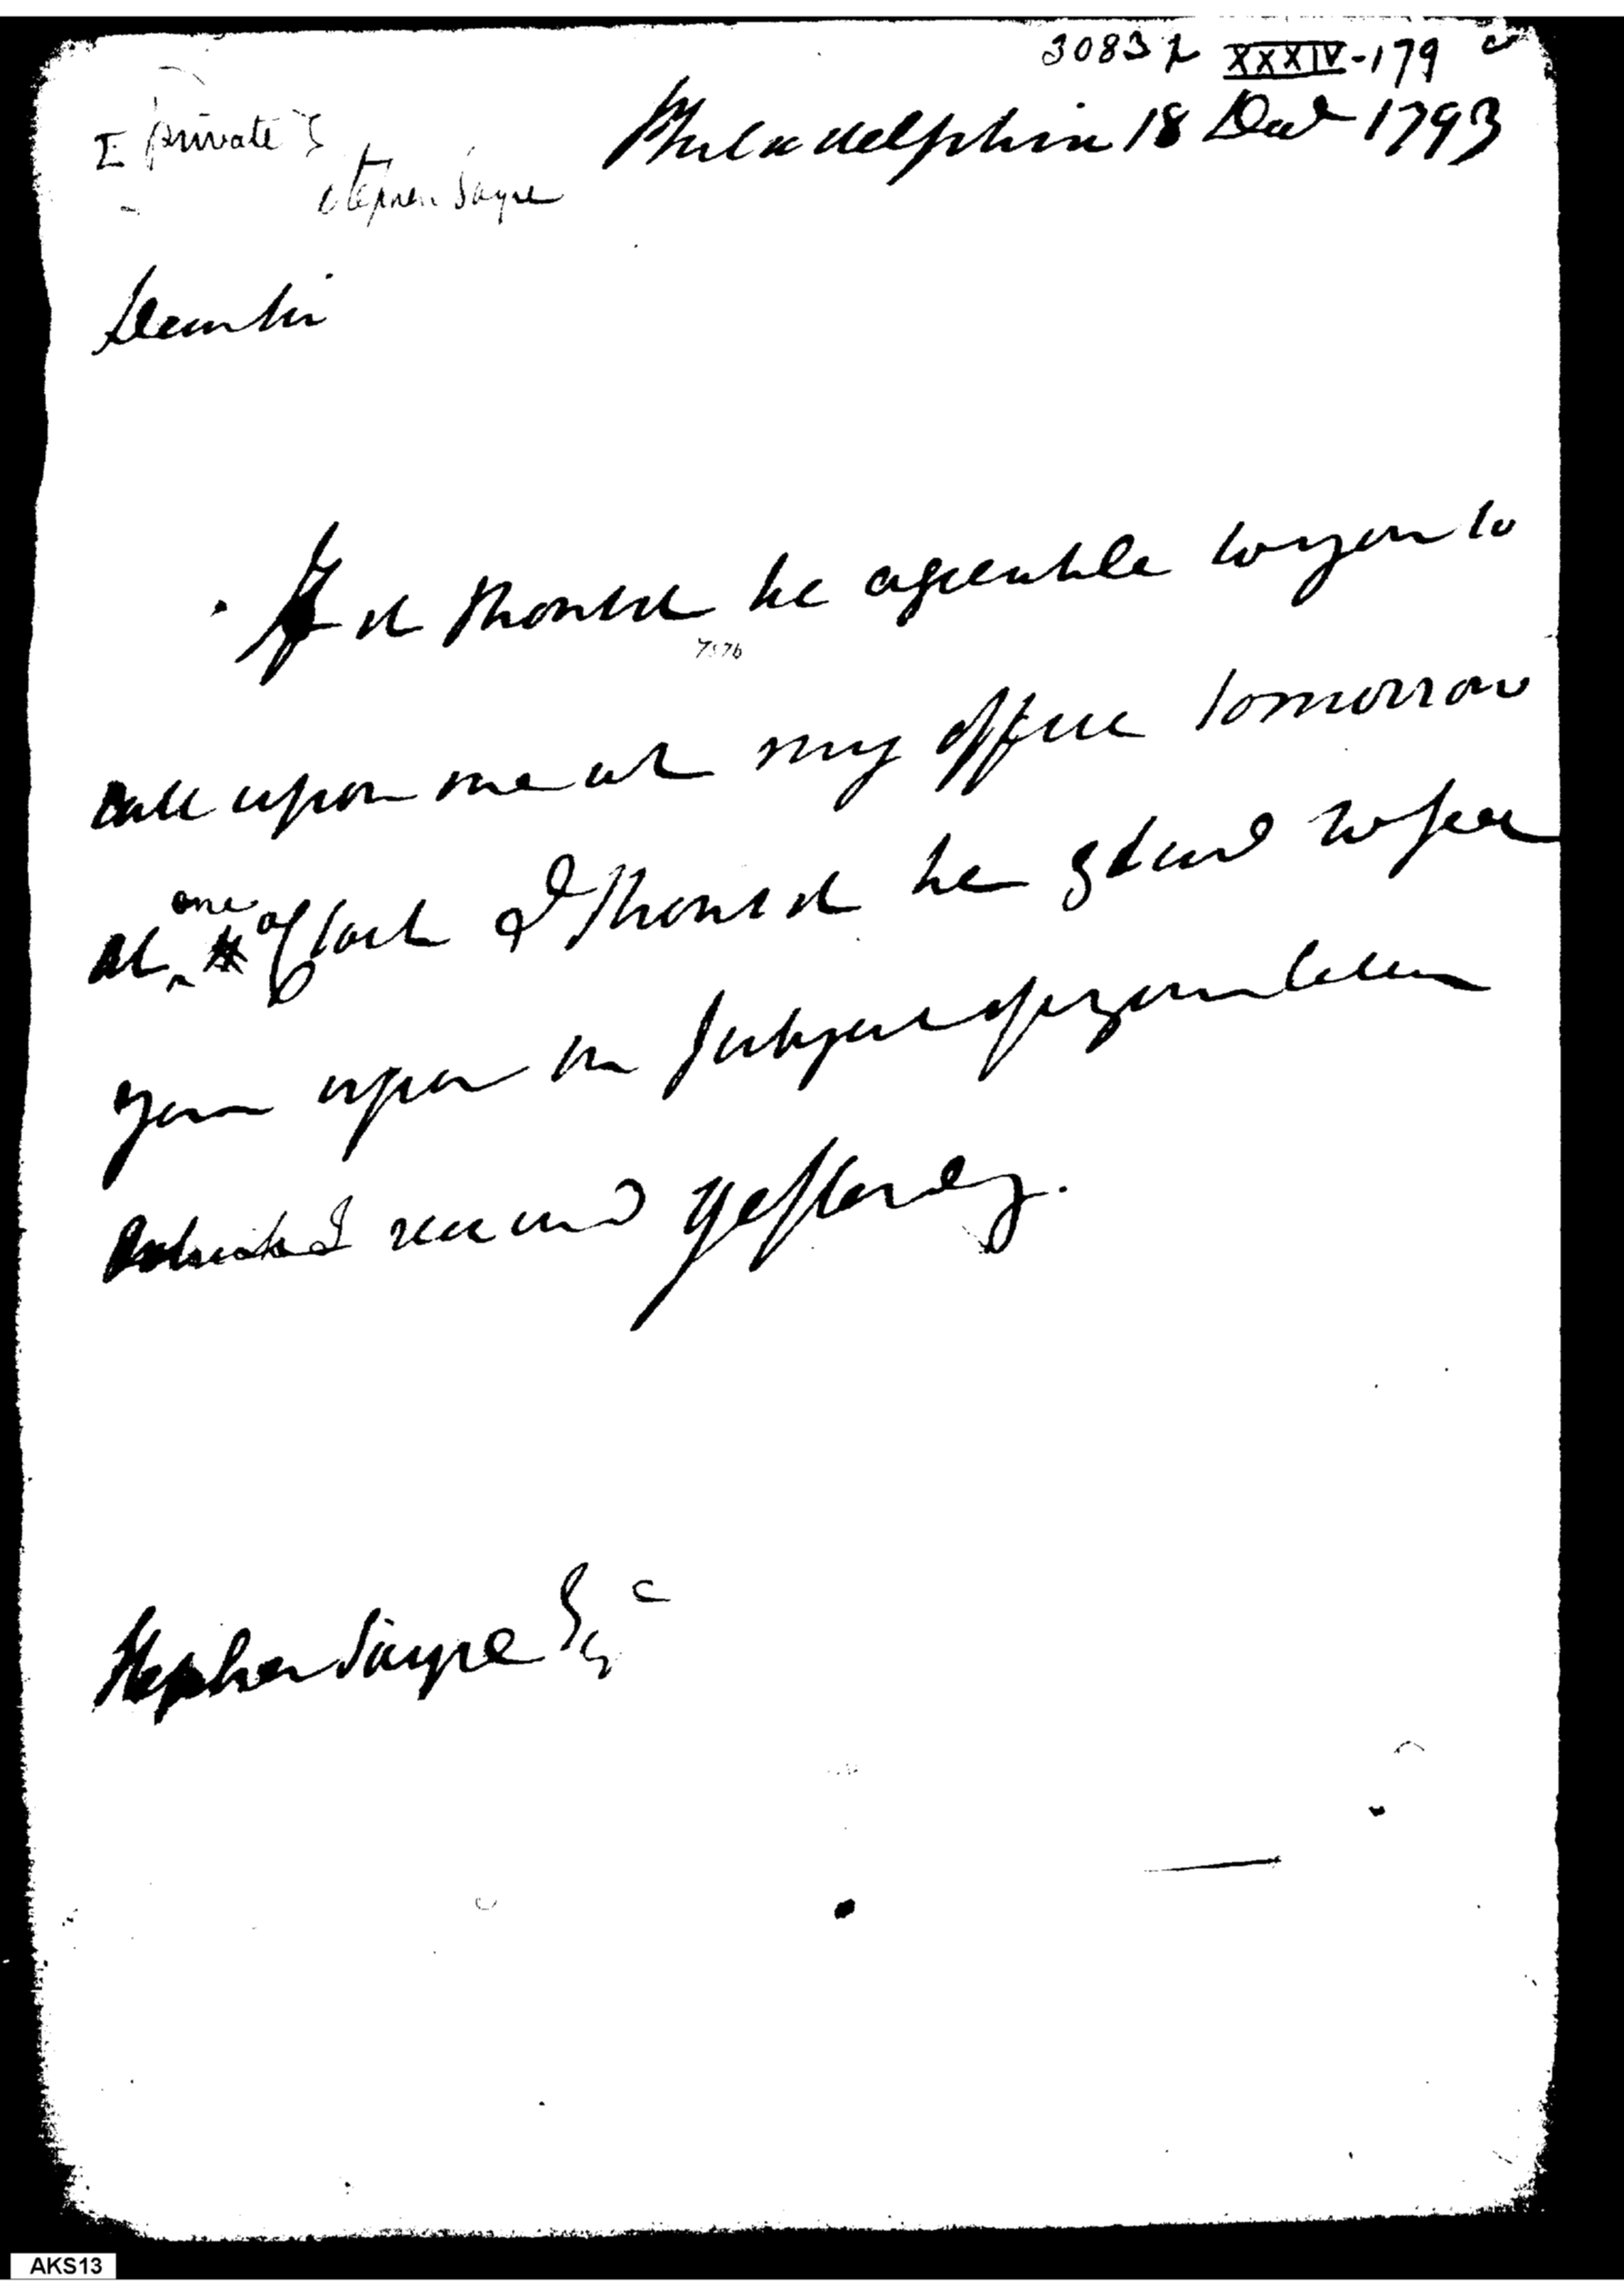 30832 XXXIV-179
private
Philadelphia 18 Decr 1793
Stephen Sayre
Dear Sir
If it should be agreeable to you to
7576
call upon me at my office tomorrow
one
at of Clock I should be glad to see
you upon the subject of your letter
which I received yesterday.
Stephen Sayre Esqe
AKS13